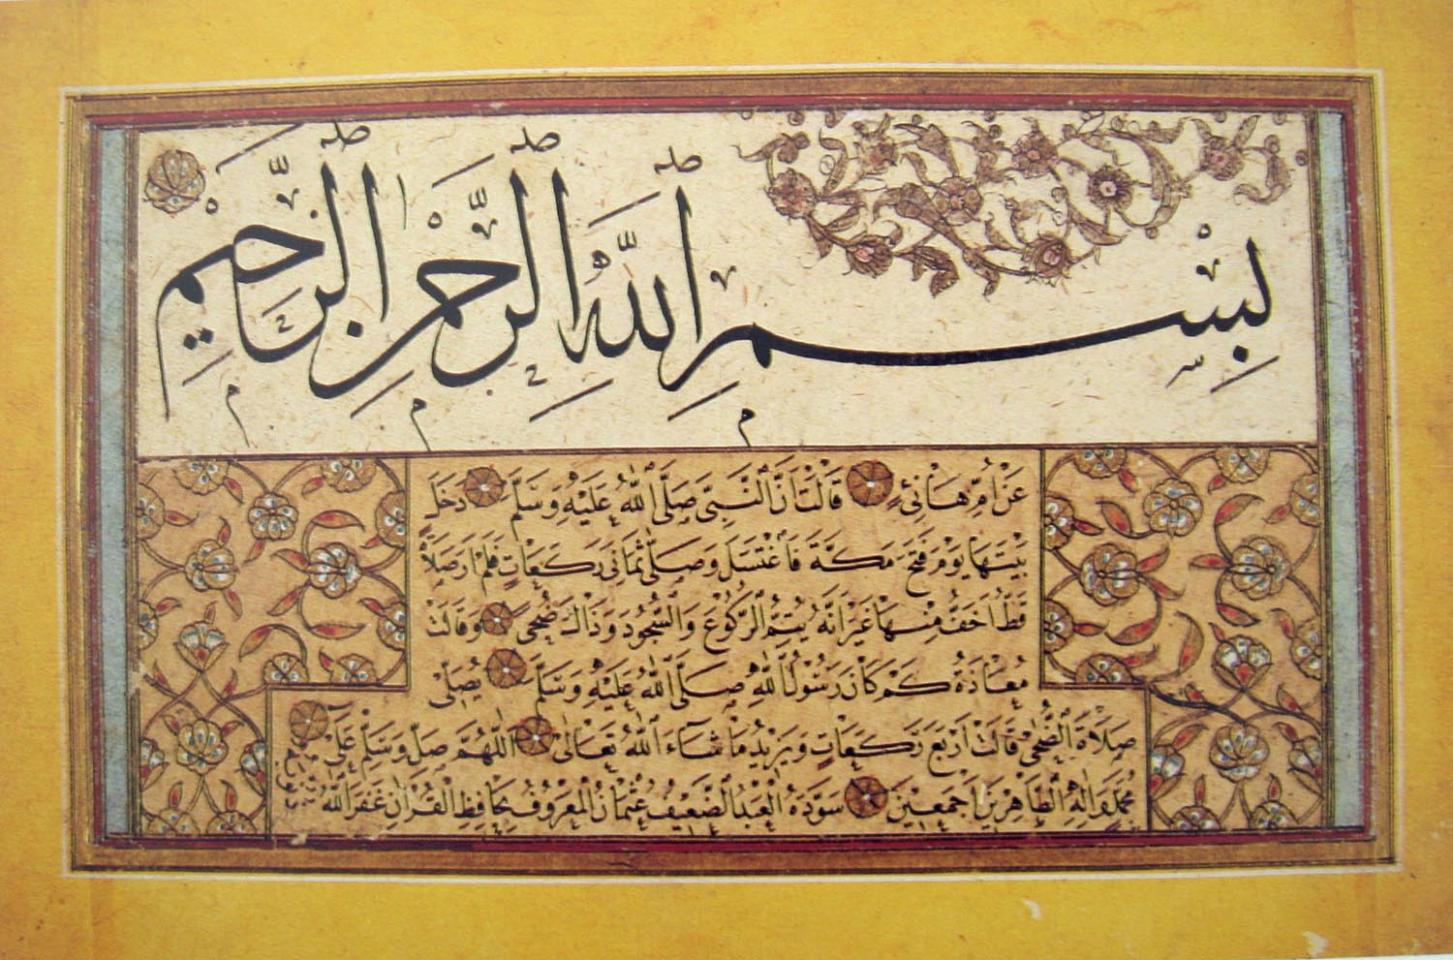 بِسْمِ اللّٰهِ الرَّحْمٰنِ الرَّحِيْمِ
عَنْ اُمِّ هَانِئٍ قَالَتْ اَنَّ النَّبِيَّ صَلَّى اللّٰهُ عَلَيْهِ وَسَلَّمَ دَخَلَ
بَيْتَهَا يَوْمَ فَتْحِ مَكَّةَ فَاغْتَسَلَ وَصَلّٰى ثَمَانِيَ رَكَعَاتٍ فَلَمْ اَرَ صَلَاةً
قَطُّ اَخَفَّ مِنْهَا غَيْرَ اَنَّهُ يُتِمُّ الرُّكُوعَ وَالسُّجُودَ وَذَاكَ ضُحًى وَقَالَتْ
مُعَاذَةُ كَمْ كَانَ رَسُولُ اللّٰهِ صَلَّى اللّٰهُ عَلَيْهِ وَسَلَّمَ يُصَلِّي
صَلَاةَ الضُّحٰى قَالَتْ اَرْبَعَ رَكَعَاتٍ وَيَزِيدُ مَا شَاءَ اللّٰهُ تَعَالٰى اَللّٰهُمَّ صَلِّ وَسَلِّمْ عَلٰى
مُحَمَّدٍ وَاٰلِهِ الطَّاهِرِينَ اَجْمَعِينَ سَوَّدَهُ الْعَبْدُ الضَّعِيفُ عُثْمَانُ الْمَعْرُوفُ بِحَافِظِ الْقُرْاٰنِ غَفَرَ اللّٰهُ